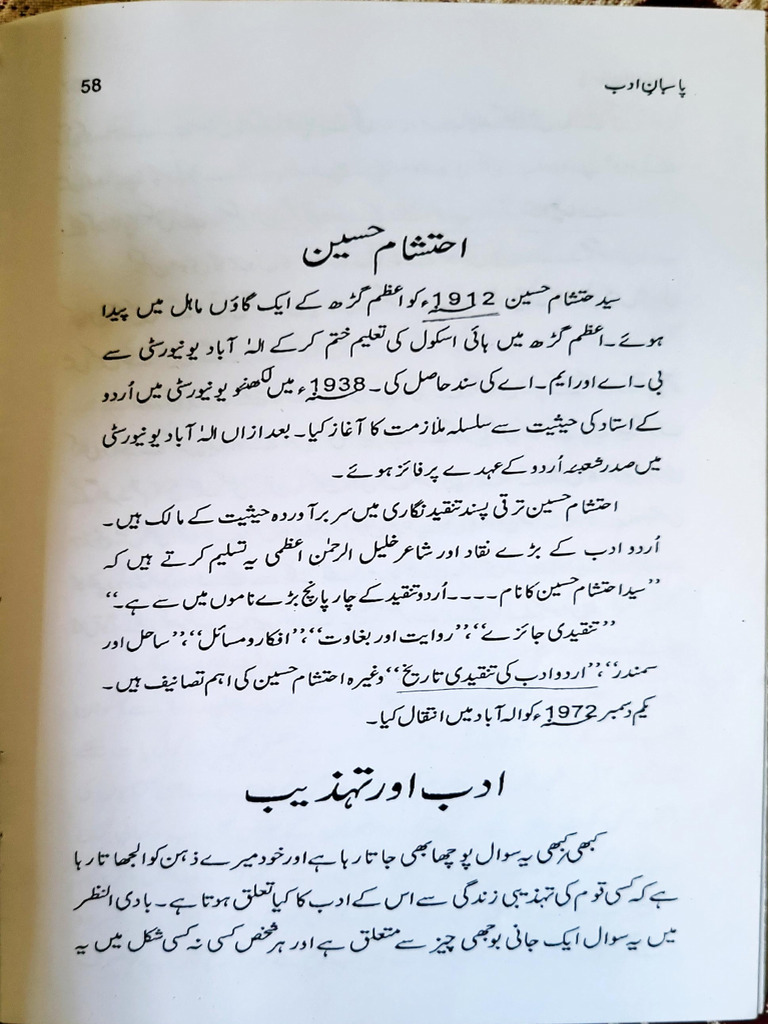 پاسبانِ ادب
58
احتشام حسین
سید حتشام حسین 1912ء کو اعظم گڑھ کے ایک گاؤں ماہل میں پیدا
ہوئے۔ اعظم گڑھ میں ہائی اسکول کی تعلیم ختم کر کے الہٰ آباد یونیورسٹی سے
بی۔اے اور ایم۔اے کی سند حاصل کی۔ 1938ء میں لکھنؤ یونیورسٹی میں اُردو
کے استاد کی حیثیت سے سلسلہ ملازمت کا آغاز کیا۔ بعد ازاں الہٰ آباد یونیورسٹی
میں صدر شعبۂ اُردو کے عہدے پر فائز ہوئے۔
احتشام حسین ترقی پسند تنقید نگاری میں سربرآوردہ حیثیت کے مالک ہیں۔
اُردو ادب کے بڑے نقاد اور شاعر خلیل الرحمٰن اعظمی یہ تسلیم کرتے ہیں کہ
”سید احتشام حسین کا نام ۔۔۔۔ اُردو تنقید کے چار پانچ بڑے ناموں میں سے ہے۔“
”تنقیدی جائزے“، ”روایت اور بغاوت“، ”افکار و مسائل“، ”ساحل اور
سمندر“، ”اردو ادب کی تنقیدی تاریخ“ وغیرہ احتشام حسین کی اہم تصانیف ہیں۔
یکم دسمبر 1972ء کو الہ آباد میں انتقال کیا۔
ادب اور تہذیب
کبھی کبھی یہ سوال پوچھا بھی جاتا رہا ہے اور خود میرے ذہن کو الجھاتا رہا
ہے کہ کسی قوم کی تہذیبی زندگی سے اس کے ادب کا کیا تعلق ہوتا ہے۔ بادی النظر
میں یہ سوال ایک جانی بوجھی چیز سے متعلق ہے اور ہر شخص کسی نہ کسی شکل میں یہ